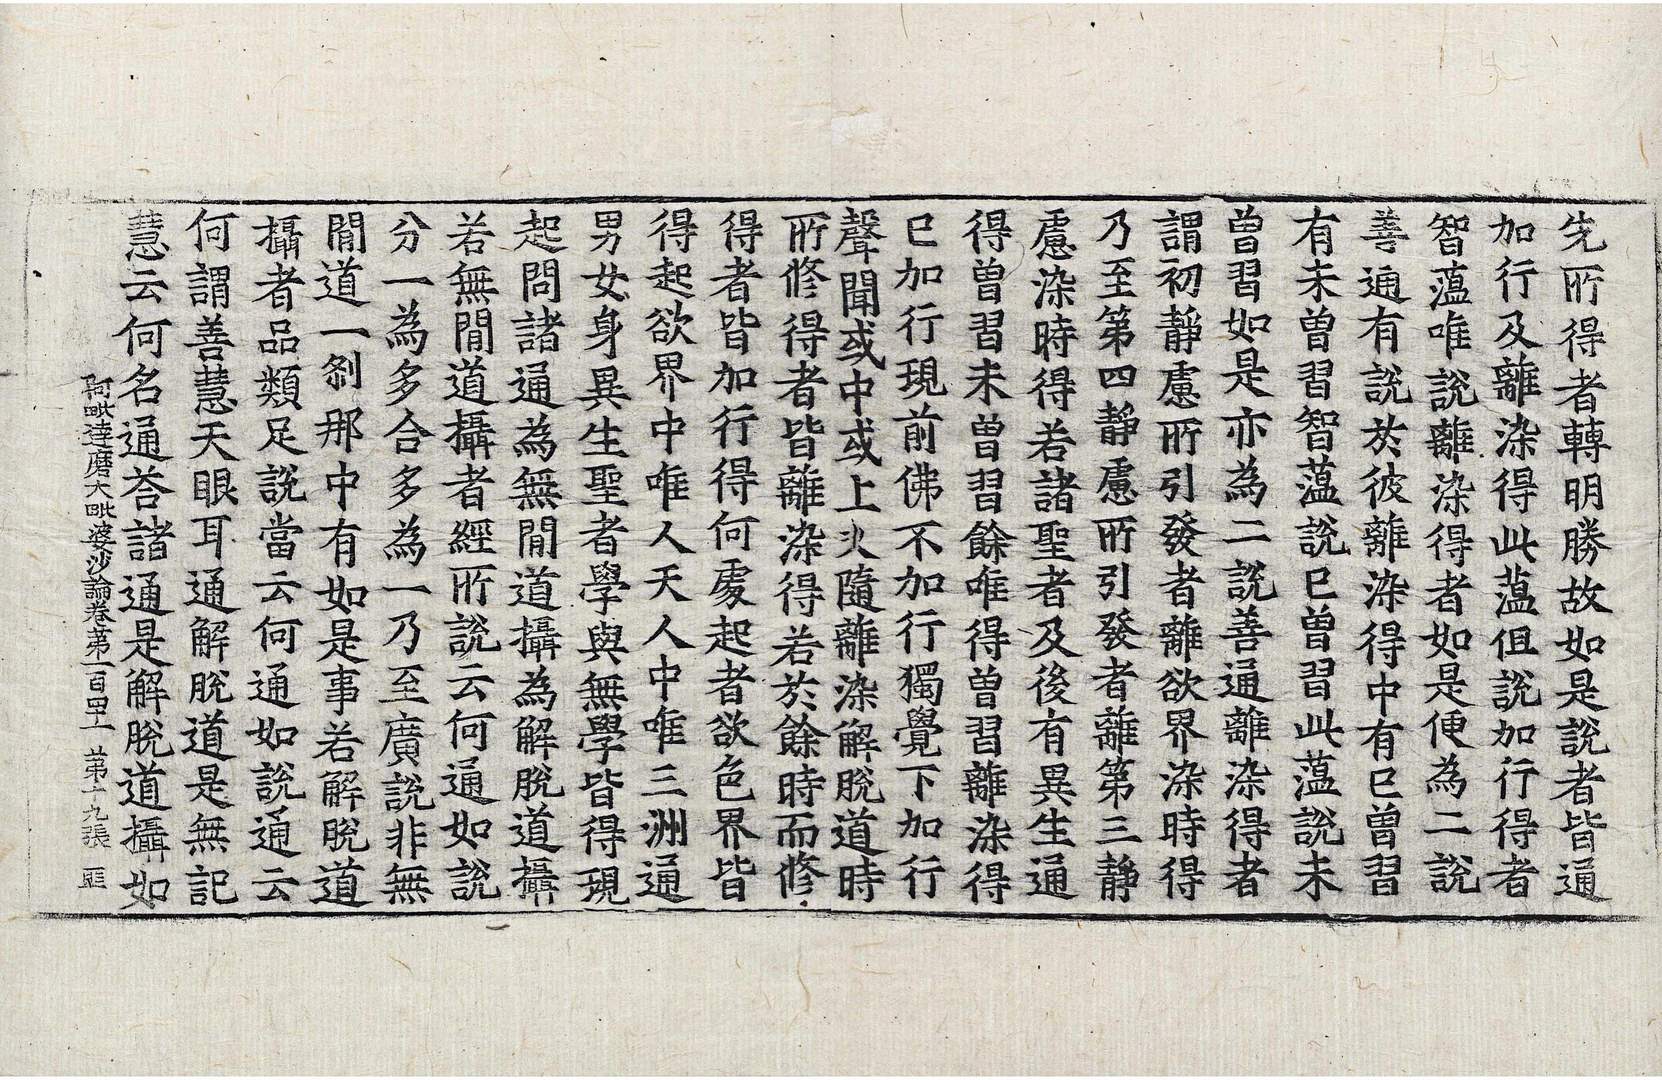 先所得者轉明勝故如是說者皆通
加行及離染得此蕰但說加行得者
智蕰唯說離染得者如是便為二說
善通有說於彼離染得中有已曾習
有未曾習智蕰說已曾習此蕰說未
曾習如是亦為二說善通離染得者
謂初靜慮所引發者離欲界染時得
乃至第四靜慮所引發者離第三靜
慮染時得若諸聖者及後有異生通
得曾習未曾習餘唯得曾習離染得
已加行現前佛不加行獨覺下加行
聲聞或中或上次隨離染解脫道時
所修得者皆離染得若於餘時而修
得者皆加行得何處起者欲色界皆
得起欲界中唯人天人中唯三洲通
男女身異生聖者學與無學皆得現
起問諸通為無閒道攝為解脫道攝
若無閒道攝者經所說云何通如說
分一為多合多為一乃至廣說非無
閒道一剎那中有如是事若解脫道
攝者品類足說當云何通如說通云
何謂善慧天眼耳通解脫道是無記
慧云何名通荅諸通是解脫道攝如
阿毗達磨大毗婆沙論卷第一百四十一 苐十九張 匪